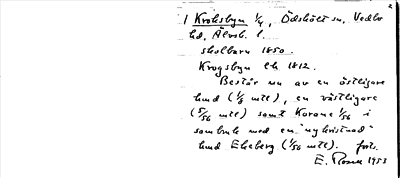 1 Kroksbyn 1/4, Ödskölt sn, Vedbo
hd, Älvsb. l.
skolbarn 1850.
Krogsbyn lk 1812.
Består nu av en östligare
lund (1/8 mtl), en västligare
(5/56 mtl) samt Korane 1/56 i
sambruk med en "nykristnad"
lund Ekeberg (1/56 mtl). forts.
E. Rosén 1953